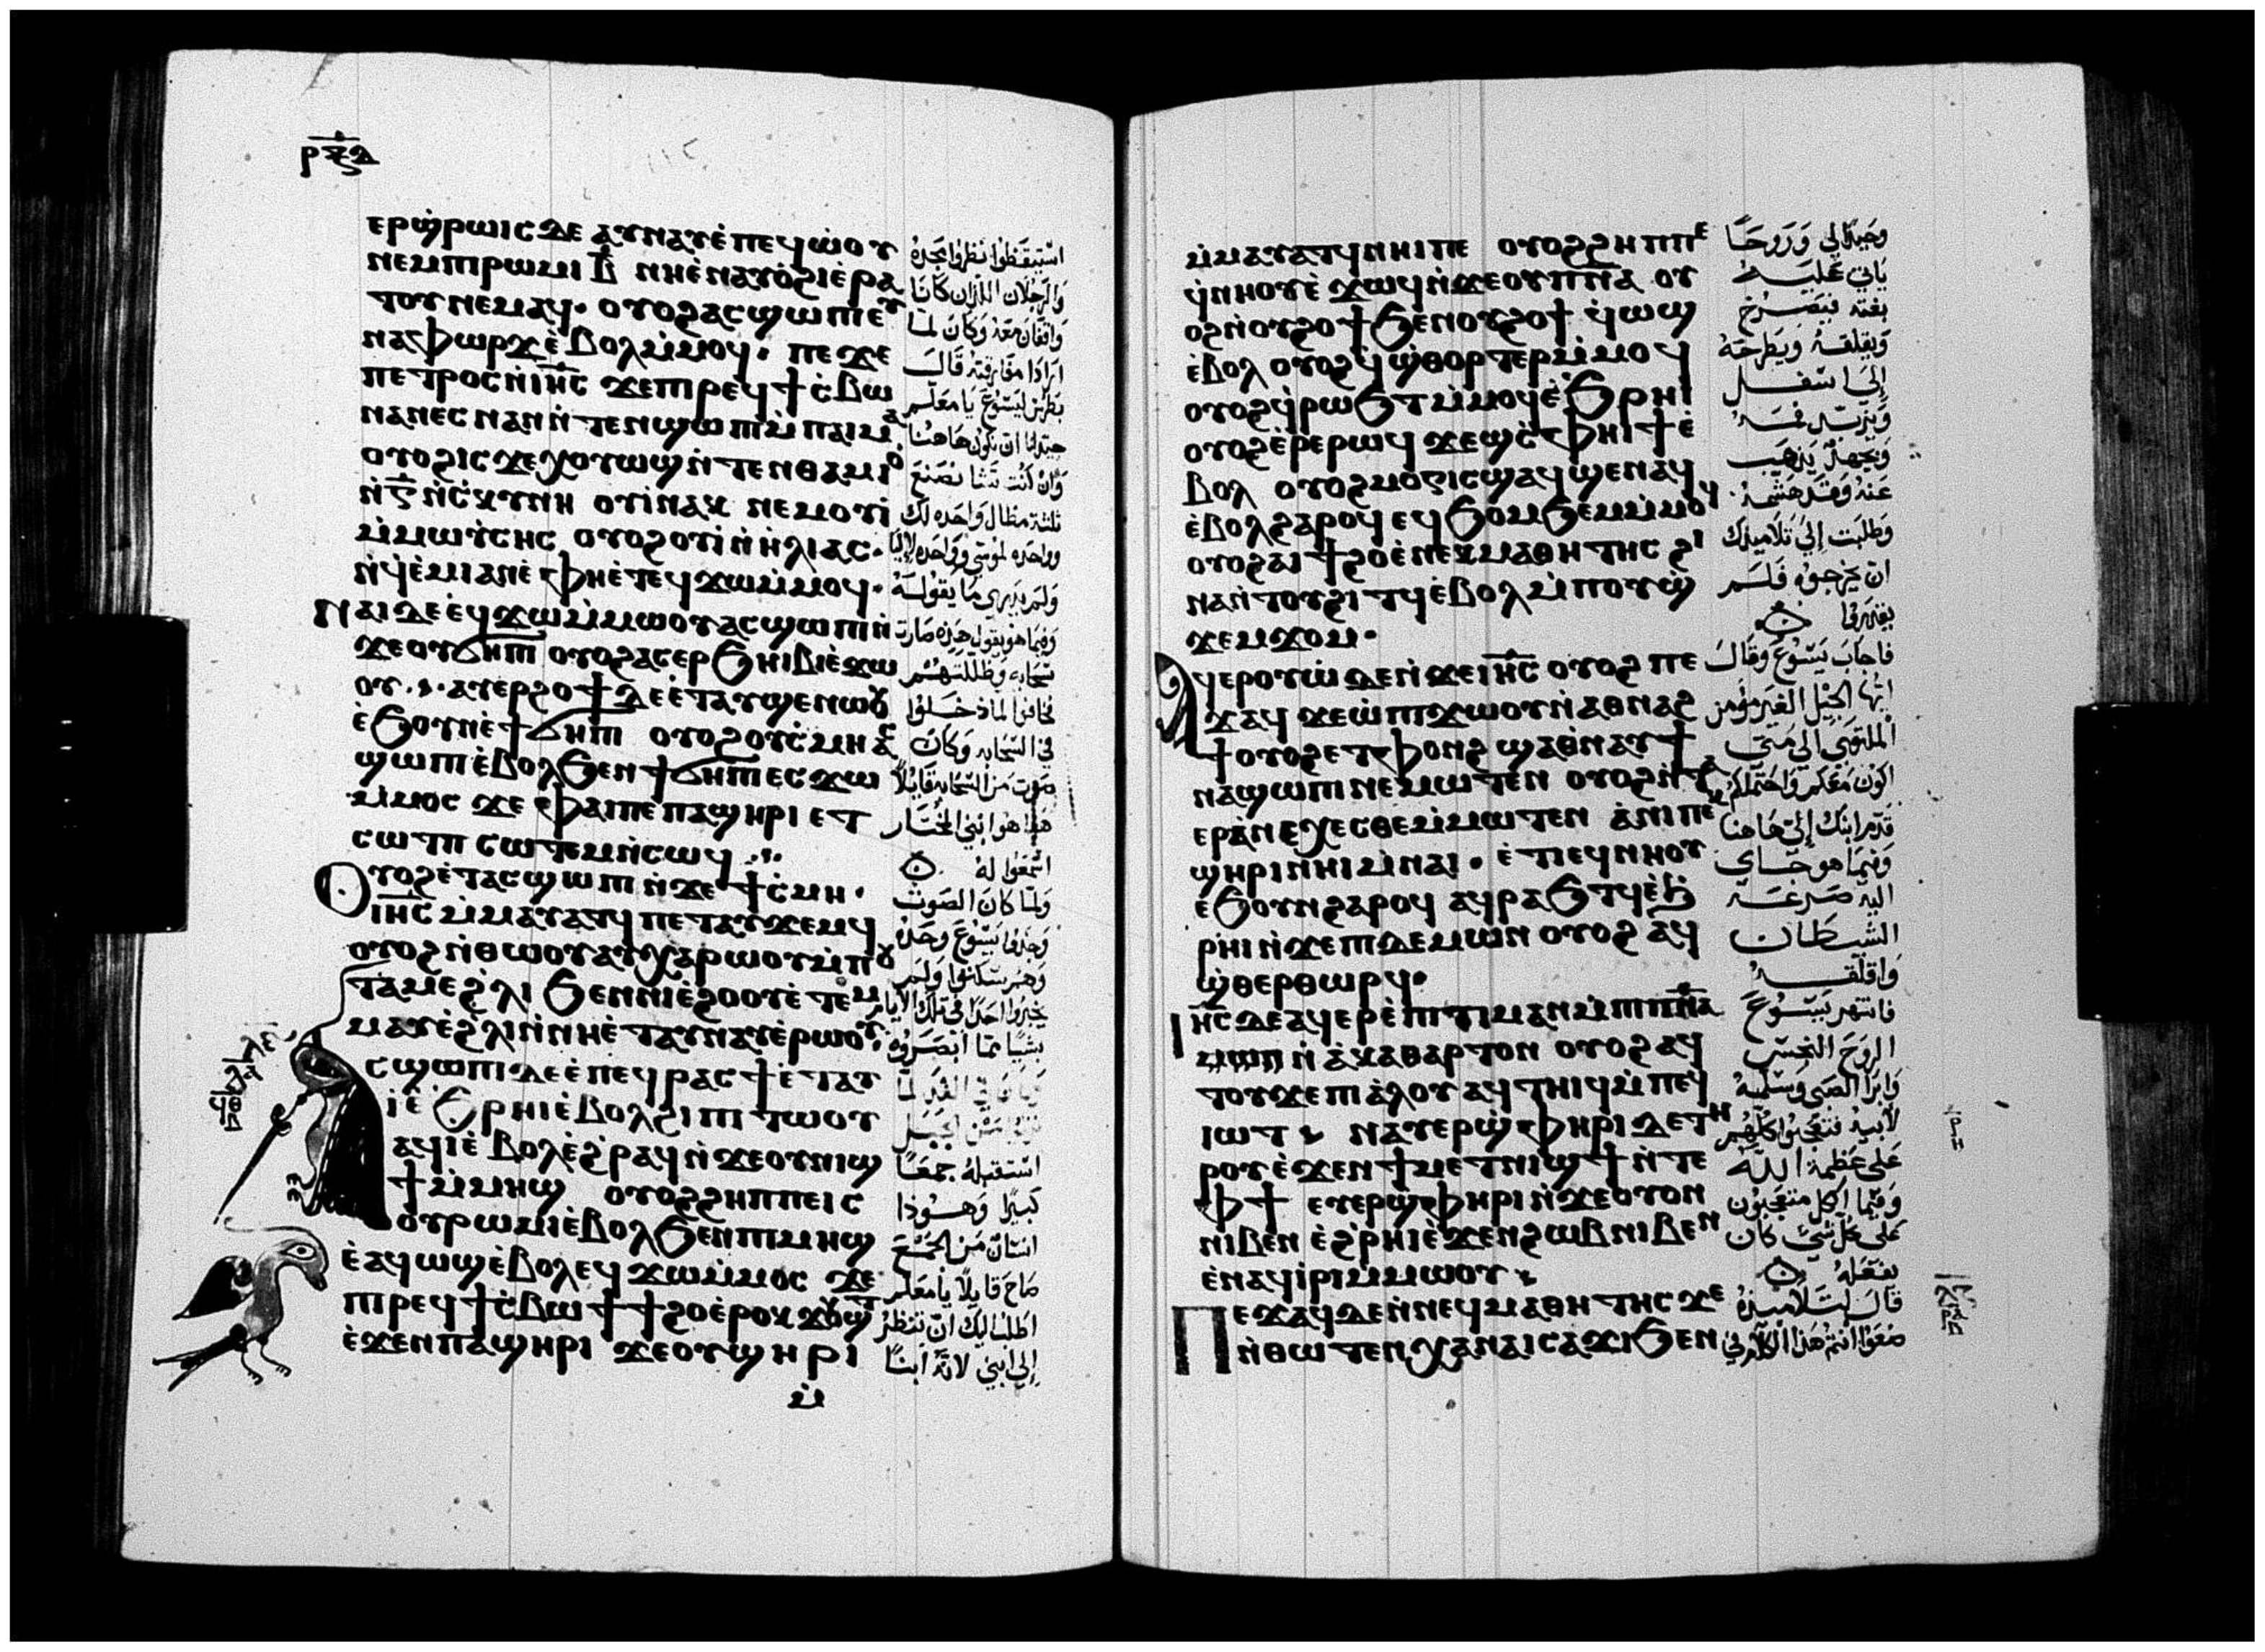 ⲣⲝⲇ
ⲉⲣϣⲣⲱⲓⲥ ⲇⲉ ⲁⲩⲛⲁⲩ ⲉⲡⲉϥⲱⲟⲩ
ⲛⲉⲙⲡⲓⲣⲱⲙⲓ ⲃ̅ ⲛⲏⲉⲛⲁⲩⲟϩⲓ ⲉⲣⲁ
ⲧⲟⲩ ⲛⲉⲙⲁϥ· ⲟⲩⲟϩ ⲁⲥϣⲱⲡⲓ ⲉⲩ
ⲛⲁⲫⲱⲣϫ ⲉⲃⲟⲗ ⲙⲙⲟϥ· ⲡⲉϫⲉ
ⲡⲉⲧⲣⲟⲥ ⲛⲓⲏ̅ⲥ̅ ϫⲉ ⲡⲓⲣⲉϥϯⲥⲃⲱ
ⲛⲁⲛⲉⲥ ⲛⲁⲛ ⲛⲧⲉⲛϣⲱⲡⲓ ⲙⲡⲁⲓⲙⲁ
ⲟⲩⲟϩ ⲓⲥϫⲉ ⲭⲟⲩⲱϣ ⲛⲧⲉⲛⲑⲁⲙⲓⲟ
ⲛⲅ̅ ⲛⲥⲕⲩⲛⲏ ⲟⲩⲓ ⲛⲁⲕ ⲛⲉⲙ ⲟⲩⲓ
ⲙⲙⲱⲩⲥⲏⲥ ⲟⲩⲟϩ ⲟⲩⲓ ⲛⲏⲗⲓⲁⲥ·
ⲛϥⲉⲙⲓ ⲁⲛⲉ ⲫⲏⲉⲧⲉϥϫⲱ ⲙⲙⲟϥ·
ⲛⲁⲓ ⲇⲉ ⲉϥϫⲱ ⲙⲙⲱⲟⲩ ⲁⲥϣⲱⲡⲓ ⲛ
ϫⲉ ⲟⲩϭⲏⲡⲓ ⲟⲩⲟϩ ⲁⲥⲉⲣϧⲏⲓⲃⲓ ⲉϫⲱ
ⲟⲩ· ⲁⲩⲉⲣϩⲟϯ ⲇⲉ ⲉⲧⲁⲩϣⲉⲛⲱⲟⲩ
ⲉϧⲟⲩⲛ ⲉϯϭⲏⲡⲓ ⲟⲩⲟϩ ⲟⲩⲥⲙⲏ ⲁⲥ
ϣⲱⲡⲓ ⲉⲃⲟⲗ ϧⲉⲛ ϯϭⲏⲡⲓ ⲉⲥϫⲱ
ⲙⲙⲟⲥ ϫⲉ ⲫⲁⲓ ⲡⲉ ⲡⲁϣⲏⲣⲓ ⲉⲧ
ⲥⲱⲧⲡ ⲥⲱⲧⲉⲙ ⲛⲥⲱϥ
ⲟⲩⲟϩ ⲉⲧⲁⲥϣⲱⲡⲓ ⲛϫⲉ ϯⲥⲙⲏ·
ⲓⲏ̅ⲥ̅ ⲙⲙⲁⲩⲁⲧϥ ⲡⲉⲧⲁⲩϫⲉⲙϥ
ⲟⲩⲟϩ ⲛⲑⲱⲟⲩ ⲁⲩⲭⲁⲣⲱⲟⲩ ⲙⲡⲟⲩ
ⲧⲁⲙⲉ ϩⲗⲓ ϧⲉⲛ ⲛⲓⲉϩⲟⲟⲩ ⲉⲧⲉⲙ
ⲙⲁⲩ ⲉϩⲗⲓ ⲛⲛⲏⲉⲧⲁⲩⲛⲁⲩ ⲉⲣⲱⲟⲩ·
ⲥϣⲱⲡⲓ ⲇⲉ ⲉⲡⲉϥⲣⲁⲥϯ ⲉⲧⲁⲩ
ⲓ ⲉϧⲣⲏⲓ ⲉⲃⲟⲗ ϩⲓ ⲡⲓⲧⲱⲟⲩ
ⲁϥⲓ ⲉⲃⲟⲗ ⲉϩⲣⲁϥ ⲛϫⲉ ⲟⲩⲛⲓϣ
ϯ ⲙⲙⲏϣ ⲟⲩⲟϩ ϩⲏⲡⲡⲉ ⲓⲥ
ⲟⲩⲣⲱⲙⲓ ⲉⲃⲟⲗ ϧⲉⲛ ⲡⲓⲙⲏϣ
ⲉⲁϥⲱϣ ⲉⲃⲟⲗ ⲉϥϫⲱ ⲙⲙⲟⲥ ϫⲉ
ⲡⲓⲣⲉϥϯⲥⲃⲱ ϯϯϩⲟ ⲉⲣⲟⲕ ϫⲟⲩϣⲧ
ⲉϫⲉⲛ ⲡⲁϣⲏⲣⲓ ϫⲉ ⲟⲩϣⲏⲣⲓ
ⲙ
استيقظوا نظروا مجده
والرجلان اللذان كانا
واقفان معه وكان لما
ارادا مفارقته قال
بطرس ليسوع يا معلم
جيد لنا ان نكون هاهنا
وان كنت تشا نصنع
ثلثة مظال واحده لك
وواحده لموسى وواحده لايليا
ولم يدري ما يقوله
وفيما هو يقول هذه صارت
سحابه وظللتهم
فخافوا لما دخلوا
في السحابه وكان
صوت من السحابه قايلا
هذا هو ابني المختار
اسمعوا له
ولما كان الصوت
وجدوا يسوع وحده
وهم سكتوا ولم
يخبروا احدا في تلك الايام
بشيا مما ابصروه
استقبله جمعا
كبيرا وهوذا
انسان من الجمع
صاح قايلا يا معلم
اطلب اليك ان تنظر
الى ابني لانه ابنا
ⲙⲙⲁⲩⲁⲧϥ ⲛⲏⲓ ⲡⲉ ⲟⲩⲟϩ ϩⲏⲡⲡⲉ
ϥⲛⲏⲟⲩ ⲉϫⲱϥ ⲛϫⲉ ⲟⲩⲡⲛ̅ⲁ̅ ⲟⲩ
ⲟϩ ⲛⲟⲩϩⲟϯ ϧⲉⲛ ⲟⲩϩⲟϯ ϥⲱϣ
ⲉⲃⲟⲗ ⲟⲩⲟϩ ϥϣⲑⲟⲣⲧⲉⲣ ⲙⲙⲟϥ
ⲟⲩⲟϩ ϥⲣⲱϧⲧ ⲙⲙⲟϥ ⲉϧⲣⲏⲓ
ⲟⲩⲟϩ ⲉⲣⲉ ⲣⲱϥ ϫⲉϣⲥⲫⲏⲓϯ ⲉ
ⲃⲟⲗ ⲟⲩⲟϩ ⲙⲟⲅⲓⲥ ϣⲁϥϣⲉⲛⲁϥ
ⲉⲃⲟⲗ ϩⲁⲣⲟϥ ⲉϥϧⲟⲙϧⲉⲙ ⲙⲙⲟϥ
ⲟⲩⲟϩ ⲁⲓϯϩⲟ ⲉⲛⲉⲕⲙⲁⲑⲏⲧⲏⲥ ϩⲓ
ⲛⲁ ⲛⲧⲟⲩϩⲓⲧϥ ⲉⲃⲟⲗ ⲙⲡⲟⲩϣ
ϫⲉⲙϫⲟⲙ·
ⲁϥⲉⲣⲟⲩⲱ ⲇⲉ ⲛϫⲉ ⲓⲏ̅ⲥ̅ ⲟⲩⲟϩ ⲡⲉ
ϫⲁϥ ϫⲉ ⲱ ⲡⲓϫⲱⲟⲩ ⲛⲁⲑⲛⲁϩ
ϯ ⲟⲩⲟϩ ⲉⲧⲫⲟⲛϩ ϣⲁ ⲑⲛⲁⲩ ϯ
ⲛⲁϣⲱⲡⲓ ⲛⲉⲙⲱⲧⲉⲛ ⲟⲩⲟϩ ⲛⲧⲁ
ⲉⲣⲁⲛⲉⲭⲉⲥⲑⲉ ⲙⲙⲱⲧⲉⲛ ⲁⲛⲓ ⲡⲉⲕ
ϣⲏⲣⲓ ⲛⲏⲓ ⲙⲛⲁⲓ· ⲉⲧⲓ ⲉϥⲛⲏⲟⲩ
ⲉϧⲟⲩⲛ ϩⲁⲣⲟϥ ⲁϥⲣⲁϧⲧϥ ⲉϧ
ⲣⲏⲓ ⲛϫⲉ ⲡⲓⲇⲉⲙⲱⲛ ⲟⲩⲟϩ ⲁϥ
ϣⲑⲉⲣⲑⲱⲣϥ·
ⲓⲏ̅ⲥ̅ ⲇⲉ ⲁϥⲉⲣⲉⲡⲓⲧⲓⲙⲁⲛ ⲙⲡⲓⲡⲛ̅ⲁ̅
ⲛⲁⲕⲁⲑⲁⲣⲧⲟⲛ ⲟⲩⲟϩ ⲁϥ
ⲧⲟⲩϫⲉ ⲡⲓⲁⲗⲟⲩ ⲁϥⲧⲏⲓϥ ⲙⲡⲉϥ
ⲓⲱⲧ ⲛⲁⲩⲉⲣϣⲫⲏⲣⲓ ⲇⲉ ⲧⲏ
ⲣⲟⲩ ⲉϫⲉⲛ ϯⲙⲉⲧⲛⲓϣϯ ⲛⲧⲉ
ⲫϯ ⲉⲩⲉⲣϣⲫⲏⲣⲓ ⲛϫⲉ ⲟⲩⲟⲛ
ⲛⲓⲃⲉⲛ ⲉϩⲣⲏⲓ ⲉϫⲉⲛ ϩⲱⲃ ⲛⲓⲃⲉⲛ
ⲉⲛⲁϥⲓⲣⲓ ⲙⲙⲱⲟⲩ
ⲡⲉϫⲁϥ ⲇⲉ ⲛⲛⲉϥⲙⲁⲑⲏⲧⲏⲥ ϫⲉ
ⲛⲑⲱⲧⲉⲛ ⲭⲁ ⲛⲁⲓⲥⲁϫⲓ ϧⲉⲛ
وحيدا لي وروحا
ياتي عليه
بغته فيصرخ
ويقلقه ويطرحه
الى اسفل
ويزبد فمه
وبجهد يذهب
عنه وقد هشمه
وطلبت الى تلاميذك
ان يخرجوه فلم
يقدروا
فاجاب يسوع وقال
ايها الجيل الغير مومن
الملتوي الى متى
اكون معكم واحتملكم
قدم ابنك الي هاهنا
وفيما هو جاي
اليه صرعه
الشيطان
واقلقه
فانتهر يسوع
الروح النجس
وابرا الصبي وسلمه
لابيه فتعجبوا كلهم
على عظمة الله
وفيما الكل متعجبون
على كل شي كان
يفعله
قال لتلاميذه
ضعوا انتم هذا الكلام في